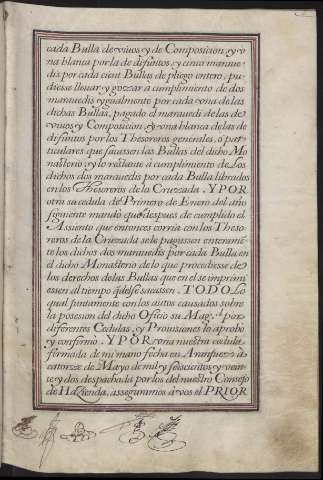 cada Bulla de viuos, y de Composicion, y vna blanca por la de difuntos, y cinco maraue-
dis por cada cient Bullas de pliego entero, pu-
diesse lleuar, y gozzar a cumplimiento de dos
marauedis ygualmente por cada vna de las
dichas Bullas, pagado el marauedi de las de
viuos, y Composicion, y vna blanca de las de
difuntos por los Thesoreros generales, ò par-
ticulares que sacassen las Bullas del dicho Mo-
nasterio; y lo restante à cumplimiento de Los
dichos dos marauedis por cada Bulla librados
en los Thesoreros de la Cruzada. Y POR
otra su cedula de Primero de Enero del año
siguiente mandò que despues de cumplido el
Assiento que entonces corria con los Theso-
reros de la Cruzada se le pagassen enteramẽ-
te los dichos dos marauedis por cada Bulla en
el dicho Monasterio de lo que procediesse de
los derechos de las Bullas que en el se imprimi-
essen al tiempo q̃ dese sacassen. TODO Lo
qual juntamente con los autos causados sobre
la posesion del dicho Oficio su Mag.d por
diferentes Cedulas, y Prouisiones lo aprobo
y confirmo. Y POR vna nuestra cedula
firmada de mi mano fecha en Aranjuez à
catorze de Mayo de mil y seiscientos y vein-
te y dos despachada por los del nuestro Consejo
de Hazienda, asseguramos à vos el PRIOR